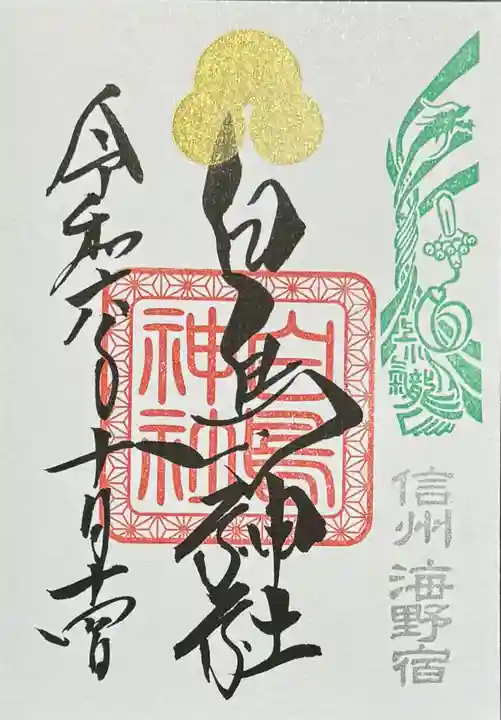 上小
信州 海野宿
白鳥神社
白鳥
神社
令和六年十月